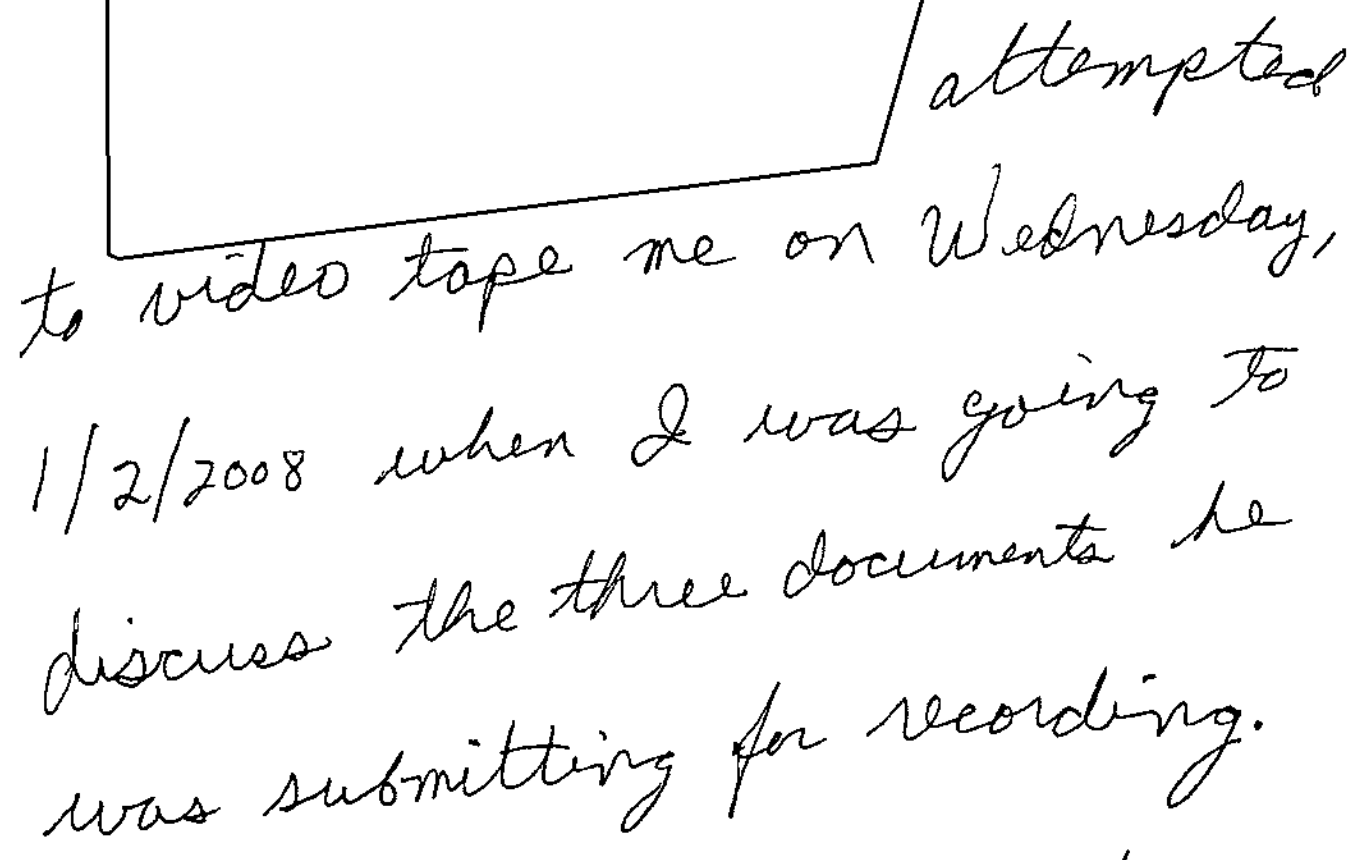 attempted
to video tape me on Wednesday,
1/2/2008 when I was going to
discuss the three documents he
was submitting for recording.